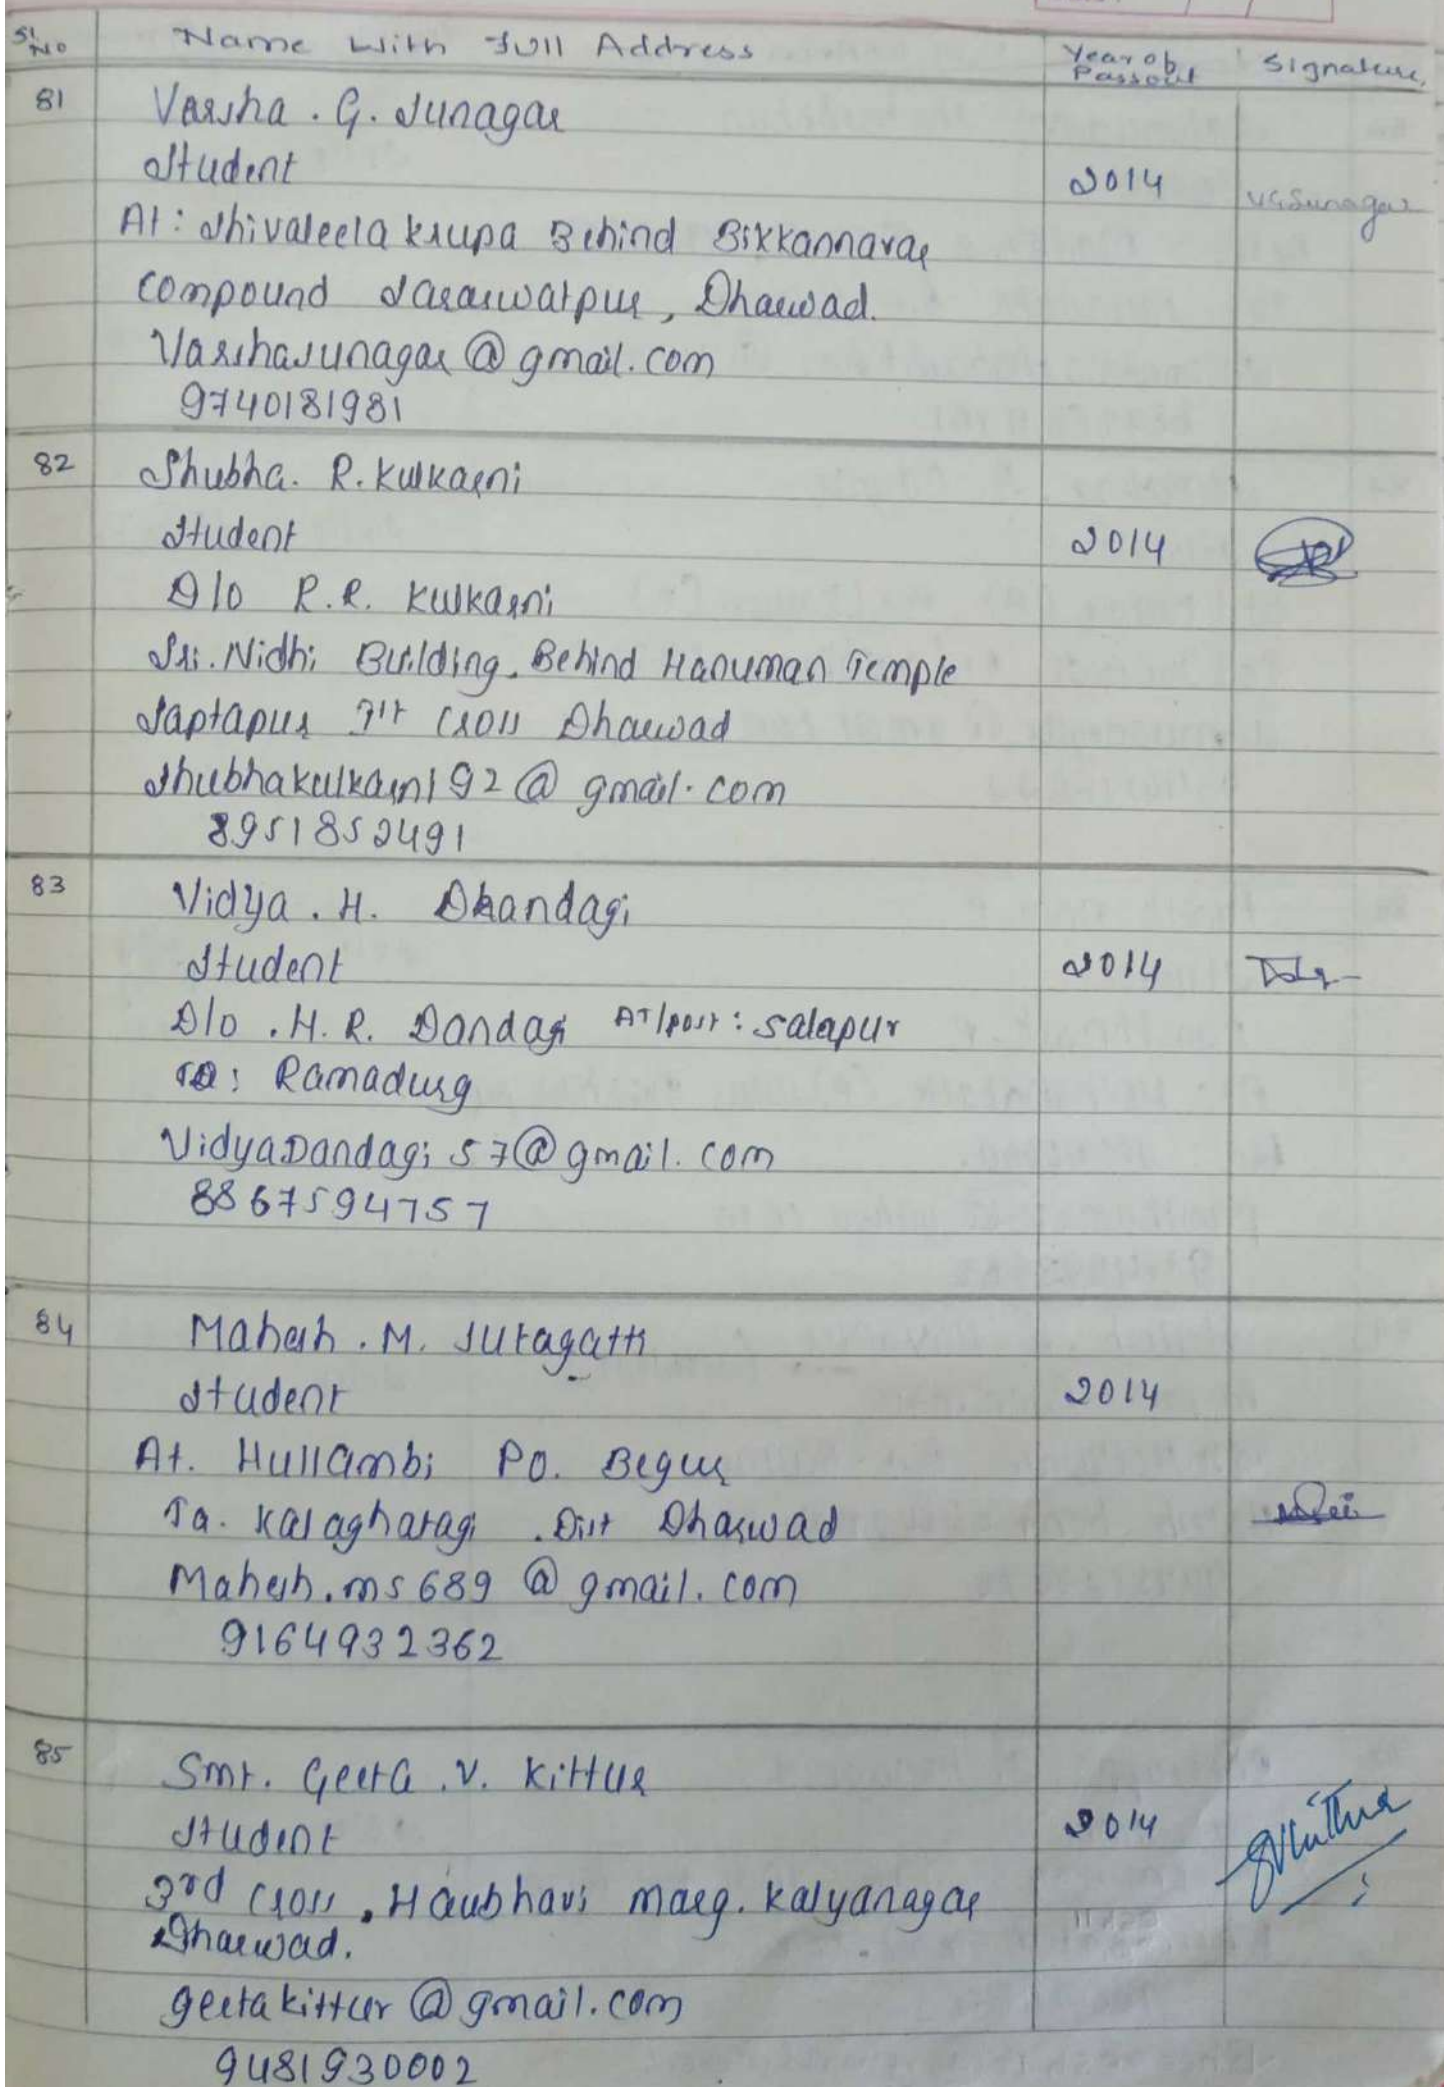 Sl No Name With Full Address Year of Passout Signature
81 Varsha . G. Sunagar
Student 2014 VGSunagar
At : Shivaleela krupa Behind Bikkannavar
Compound Saraswatpur, Dharwad.
Varshasunagar@gmail.com
9740181981
82 Shubha. R. Kulkarni
Student 2014
D/o R.R. Kulkarni
Sri. Nidhi Building. Behind Hanuman Temple
Saptapur Ist Cross Dharwad
Shubhakulkarni92@gmail.com
8951852491
83 Vidya . H. Dhandagi
Student 2014
D/o . H. R. Dandagi AT/post : Salapur
Ta: Ramadurg
VidyaDandagi57@gmail.com
8867594757
84 Mahesh . M. Sutagatti
Student 2014
At. Hullambi Po. Begur
Ta. Kalaghatagi . Dist Dharwad
Mahesh.ms689@gmail.com
9164932362
85 Smt. Geeta .V. Kittur
Student 2014 GVKittur
3rd Cross, Haubhavi marg. Kalyanagar
Dharwad.
geetakittur@gmail.com
9481930002